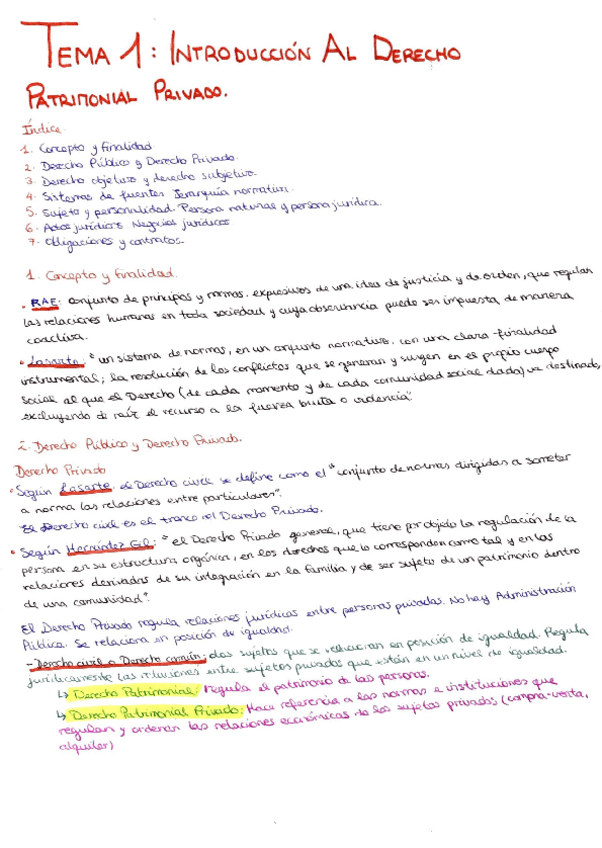 TEMA 1: INTRODUCCIÓN AL DERECHO
PATRIMONIAL PRIVADO.
Índice.
1. Concepto y finalidad
2. Derecho Público y Derecho Privado.
3. Derecho objetivo y derecho subjetivo.
4. Sistemas de fuentes. Jerarquía normativa.
5. Sujeto y personalidad. Persona natural y persona jurídica.
6. Actos jurídicos. Negocios jurídicos
7. Obligaciones y contratos.
1. Concepto y finalidad.
• RAE: conjunto de principios y normas, expresivos de una idea de justicia y de orden, que regulan
las relaciones humanas en toda sociedad y cuya observancia puede ser impuesta de manera
coactiva.
• Lasarte: "un sistema de normas, en un conjunto normativo, con una clara finalidad
instrumental; la resolución de los conflictos que se generan y surgen en el propio cuerpo
social al que el Derecho (de cada momento y de cada comunidad social dada) va destinado,
excluyendo de raíz el recurso a la fuerza bruta o violencia".
2. Derecho Público y Derecho Privado.
Derecho Privado
• Según Lasarte: el Derecho civil se define como el "conjunto de normas dirigidas a someter
a norma las relaciones entre particulares".
El Derecho civil es el tronco del Derecho Privado.
• Según Hernández Gil: "el Derecho Privado general, que tiene por objeto la regulación de la
persona en su estructura orgánica, en los derechos que le corresponden como tal y en las
relaciones derivadas de su integración en la familia y de ser sujeto de un patrimonio dentro
de una comunidad".
El Derecho Privado regula relaciones jurídicas entre personas privadas. No hay Administración
Pública. Se relaciona en posición de igualdad.
- Derecho civil o Derecho común: dos sujetos que se relacionan en posición de igualdad. Regula
jurídicamente las situaciones entre sujetos privados que están en un nivel de igualdad.
↳ Derecho Patrimonial: regula el patrimonio de las personas.
↳ Derecho Patrimonial Privado: Hace referencia a las normas e instituciones que
regulan y ordenan las relaciones económicas de los sujetos privados (compra-venta,
alquiler)